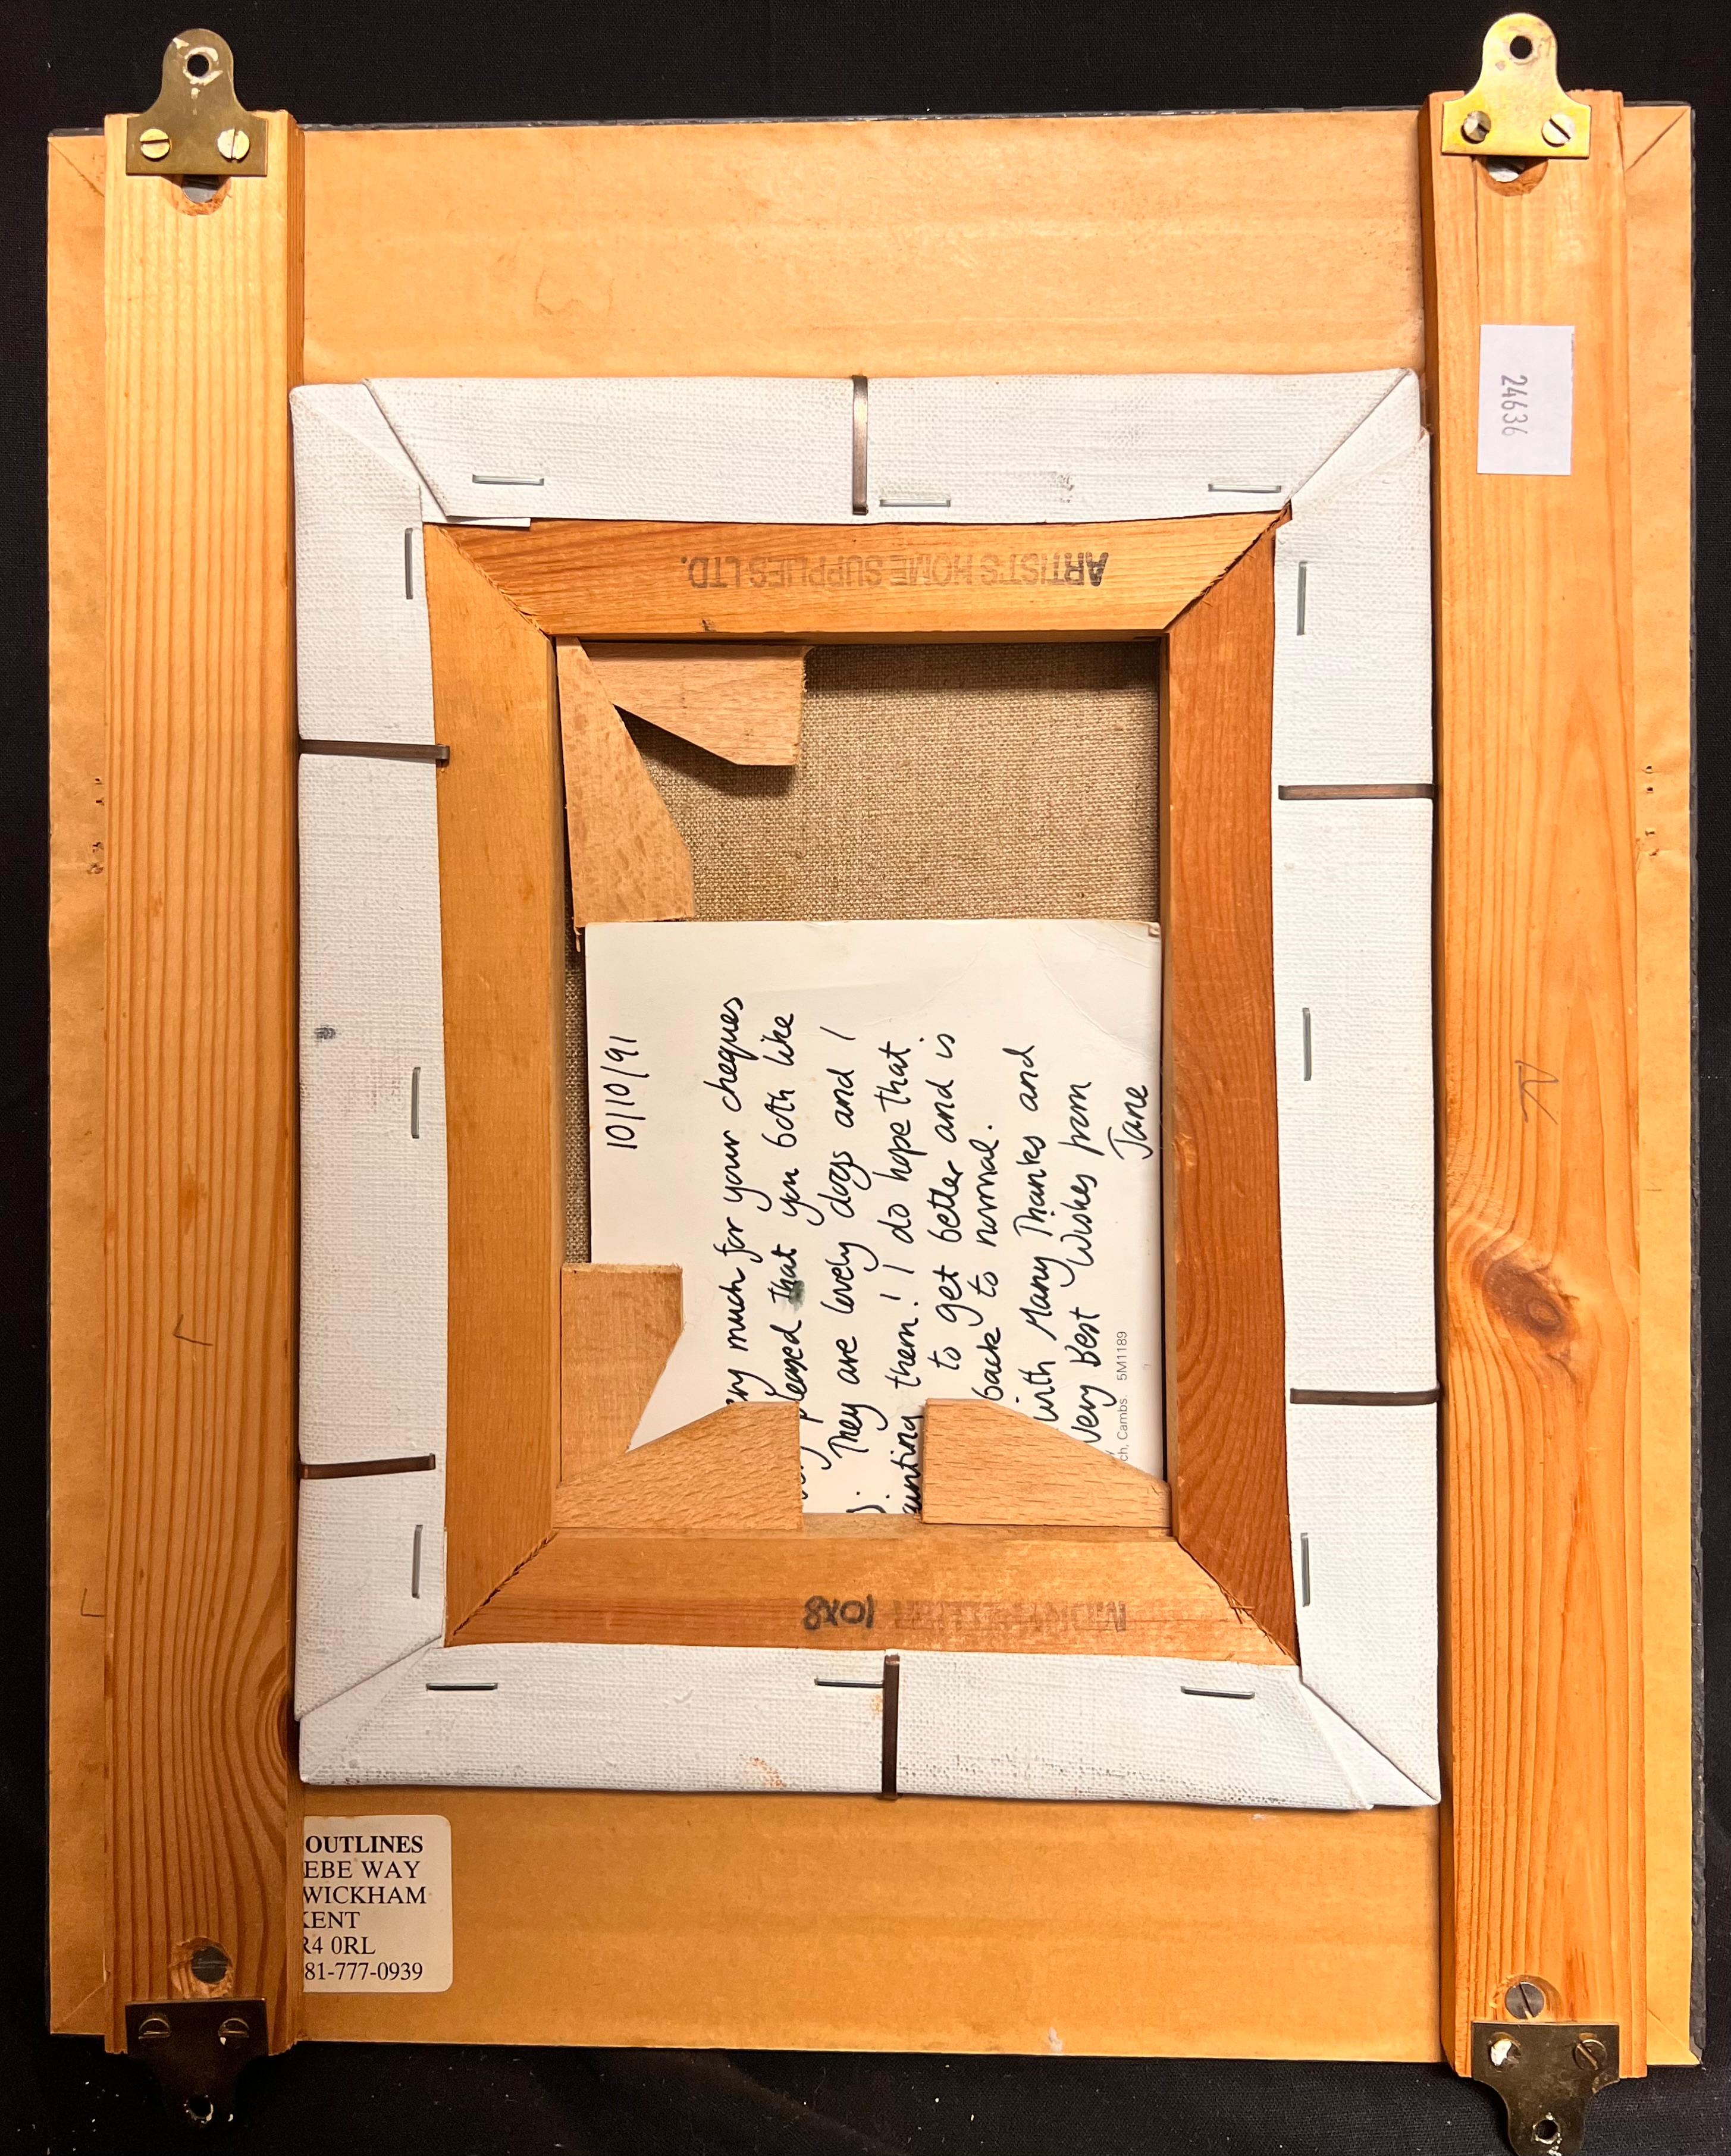 24636
ARTIST'S HOME SUPPLIES LTD.
10/10/91
ery much for your cheques
pleased that you both like
They are lovely dogs and I
unting them! I do hope that
to get better and is
back to normal.
with Many Thanks and
Very Best Wishes from
Jane
ch, Cambs. 5M1189
10X8
OUTLINES
EBE WAY
WICKHAM
KENT
R4 0RL
81-777-0939